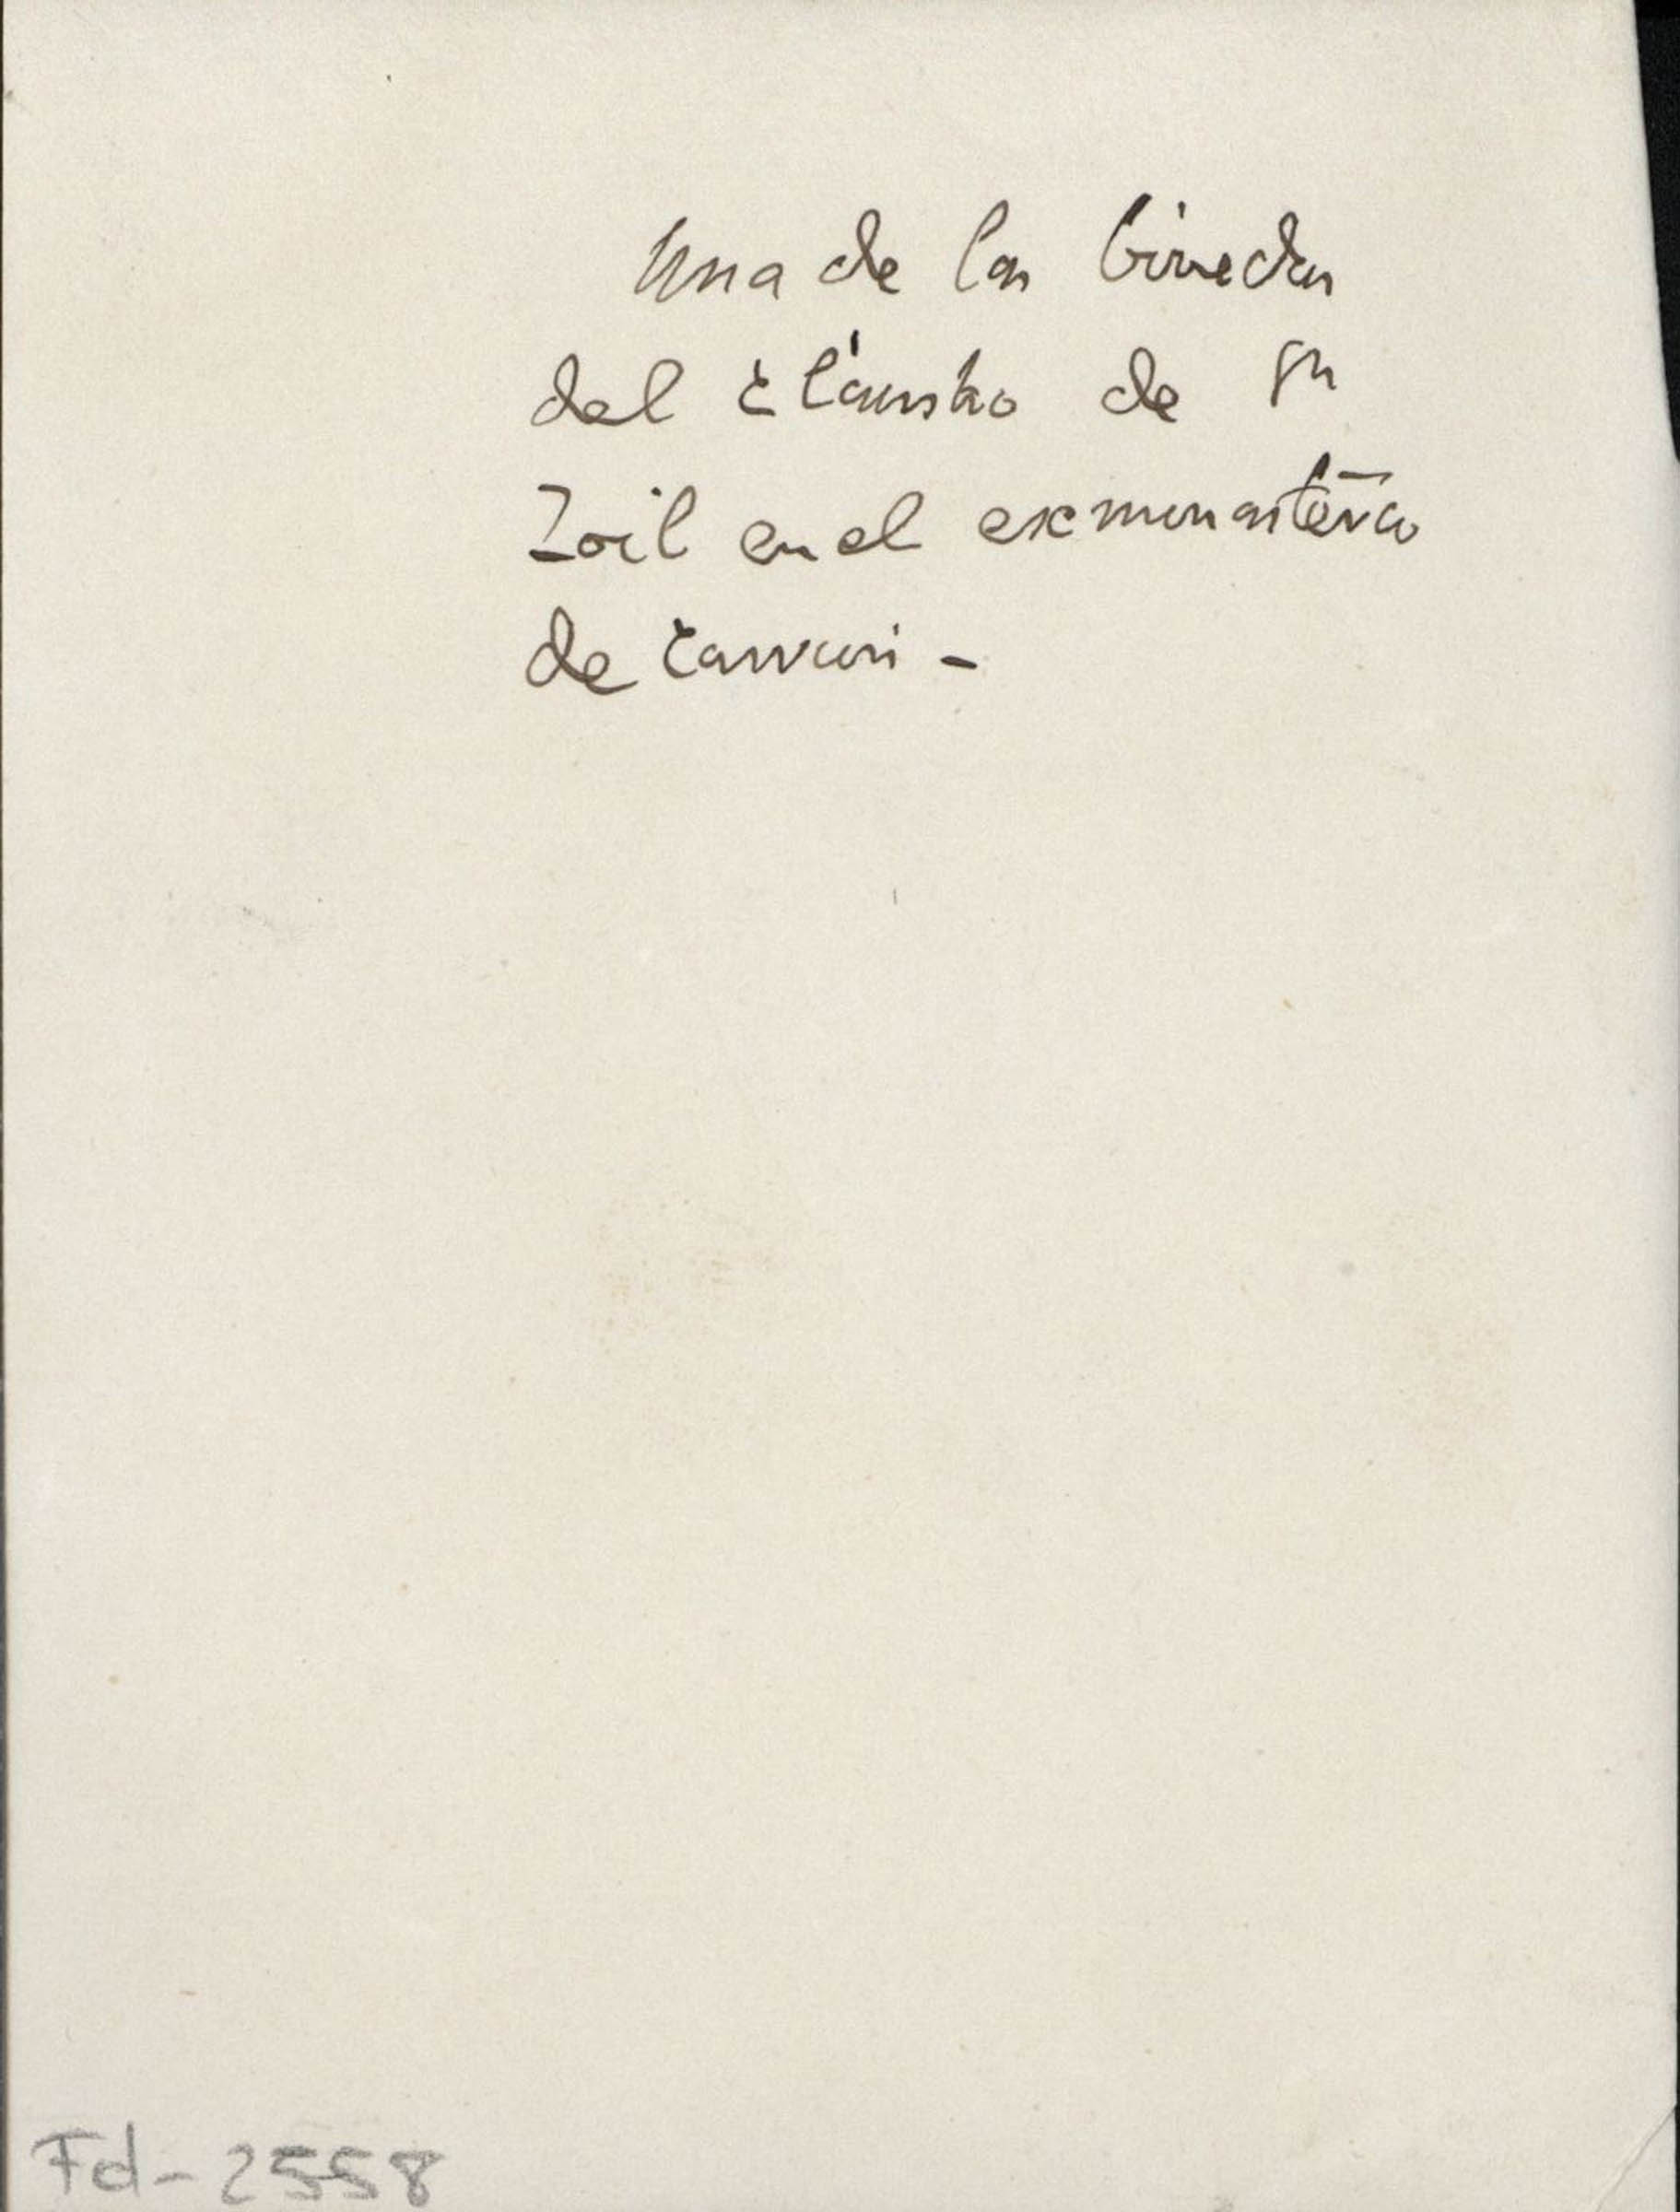 Una de las bóvedas
del Cláustro de Sn
Zoil en el exmonasterio
de Carrion -
Fd-2558